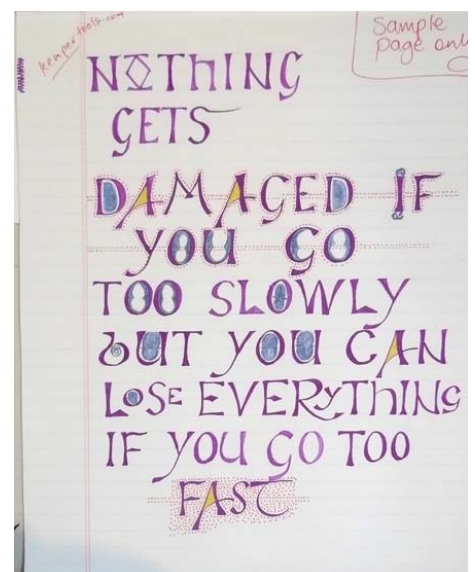 kempertools.com
Sample
page only
NOTHING
GETS
DAMAGED IF
YOU GO
TOO SLOWLY
BUT YOU CAN
LOSE EVERYTHING
IF YOU GO TOO
FAST